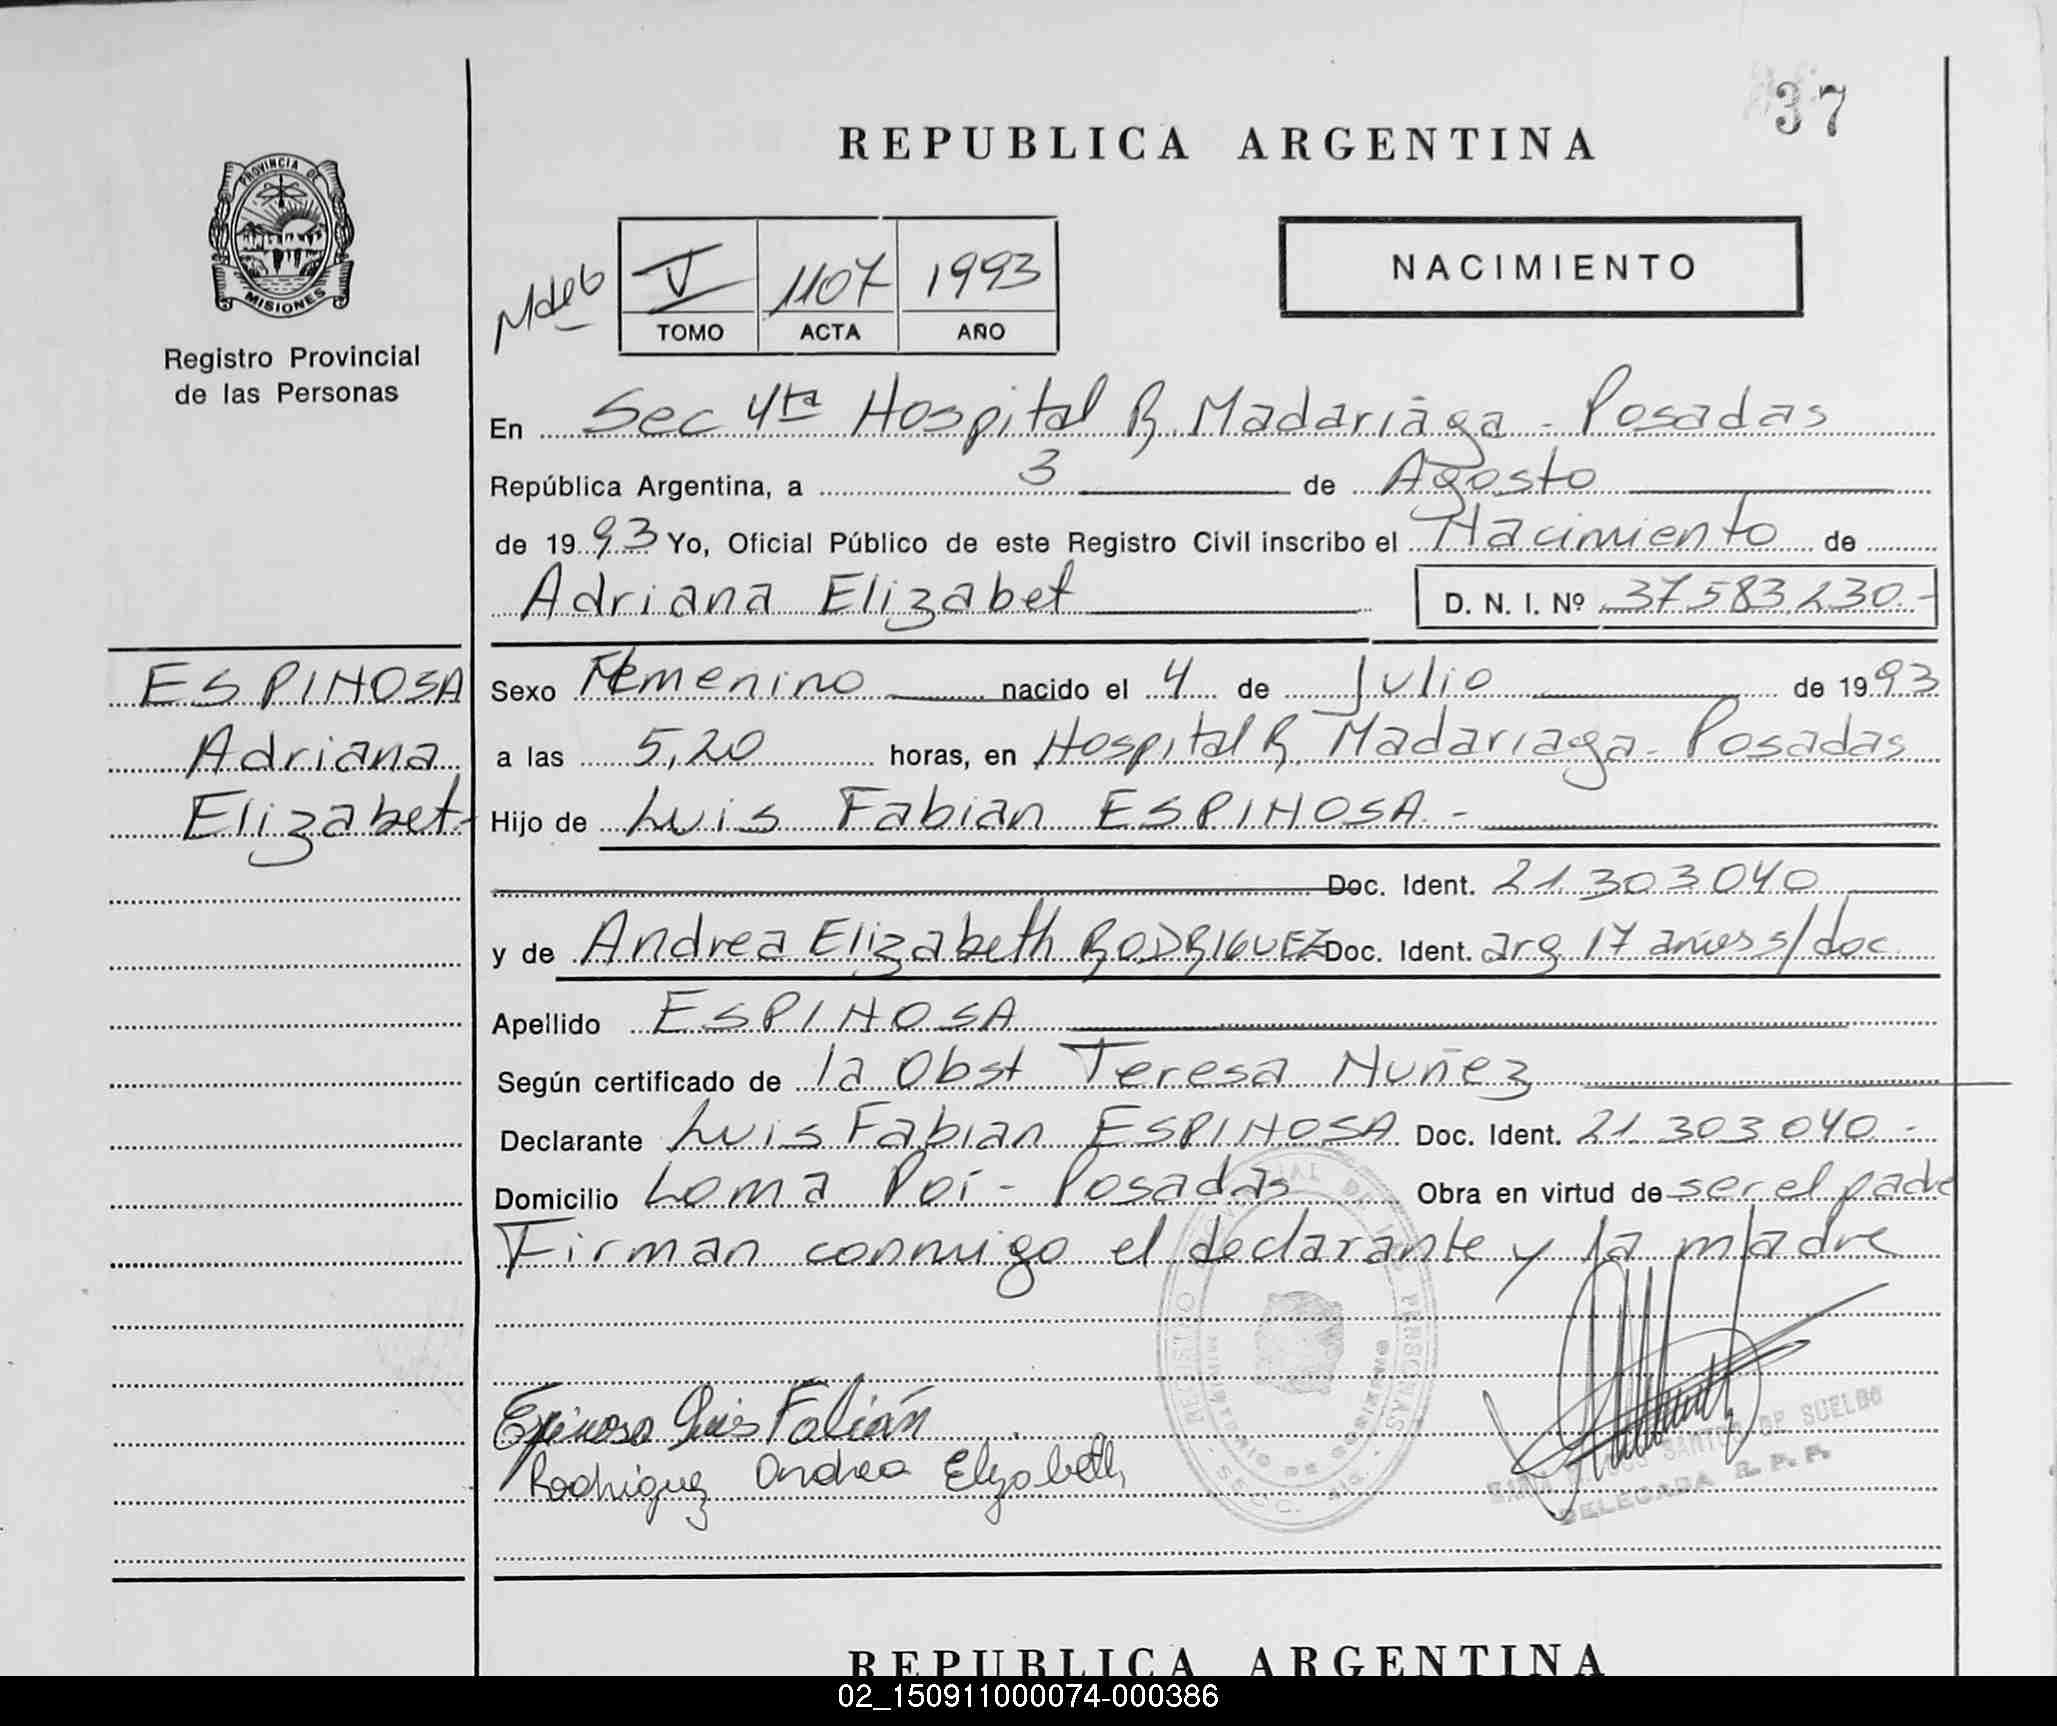 37
REPUBLICA ARGENTINA
PROVINCIA DE
MISIONES
Registro Provincial
de las Personas
V 1107 1993
TOMO ACTA AÑO
NACIMIENTO
En Sec 4ta Hospital R. Madariaga - Posadas
República Argentina, a 3 de Agosto
de 1993 Yo, Oficial Público de este Registro Civil inscribo el Nacimiento de
Adriana Elizabet D. N. I. Nº 37.583.230.-
ESPINOSA
Adriana
Elizabet.-
Sexo Femenino nacido el 4 de Julio de 1993
a las 5,20 horas, en Hospital R. Madariaga - Posadas
Hijo de Luis Fabian ESPINOSA.-
Doc. Ident. 21.303.040
y de Andrea Elizabeth RODRIGUEZ Doc. Ident. arg 17 años s/doc.
Apellido ESPINOSA
Según certificado de la Obst Teresa Nuñez
Declarante Luis Fabian ESPINOSA Doc. Ident. 21.303.040.-
Domicilio Loma Poi - Posadas Obra en virtud de ser el padre
Firman conmigo el declarante y la madre
Espinosa Luis Fabián
Rodriguez Andrea Elizabeth
SANTOS DE SUELDO
DELEGADA R. P. P.
REPUBLICA ARGENTINA
02_150911000074-000386